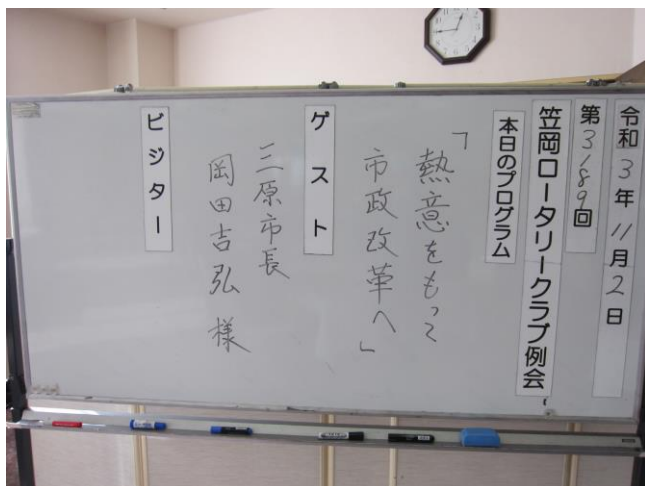 令和3年11月2日
第3189回
笠岡ロータリークラブ例会
本日のプログラム
「熱意をもって
市政改革へ」
ゲスト
三原市長
岡田吉弘 様
ビジター